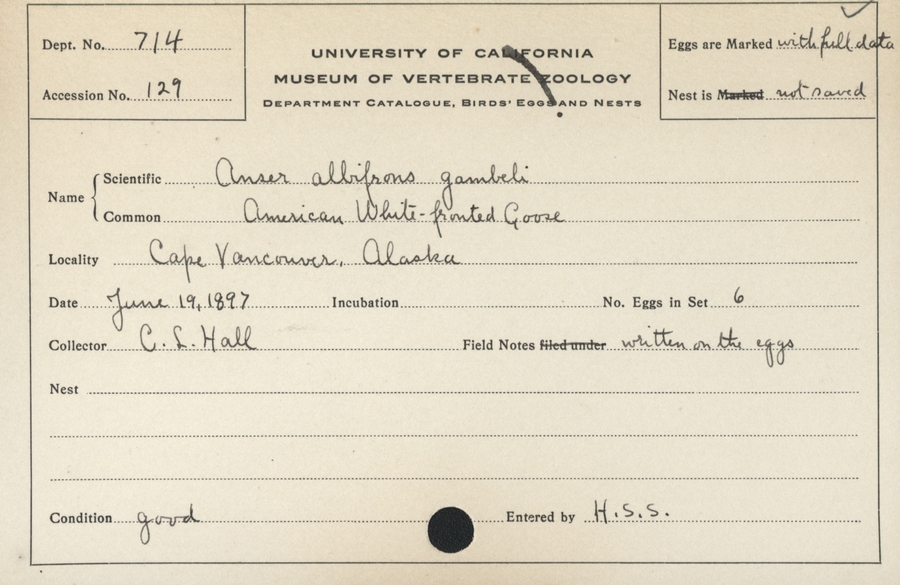 Dept. No. 714
Accession No. 129
UNIVERSITY OF CALIFORNIA
MUSEUM OF VERTEBRATE ZOOLOGY
DEPARTMENT CATALOGUE, BIRDS' EGGS AND NESTS
Eggs are Marked with full data
Nest is Marked not saved
Name
Scientific Anser albifrons gambeli
Common American White-fronted Goose
Locality Cape Vancouver, Alaska
Date June 19, 1897 Incubation No. Eggs in Set 6
Collector C. L. Hall Field Notes filed under written on the eggs
Nest
Condition good Entered by H.S.S.